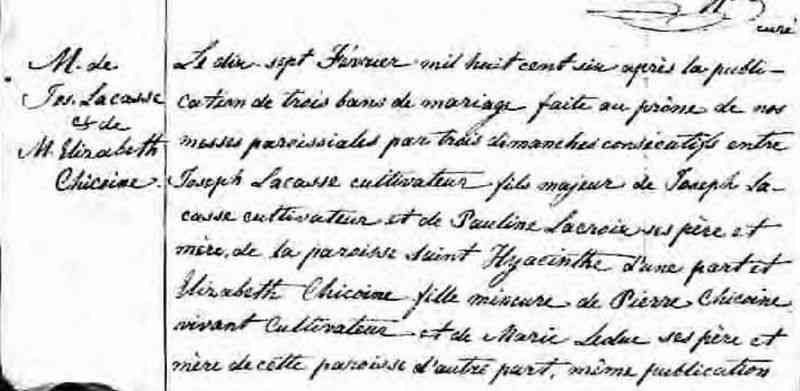 curé
M. de
Jos. Lacasse
& de
M. Elizabeth
Chicoine.
Le dix-sept Février mil huit cent six après la publi-
cation de trois bans de mariage faite au prône de nos
messes paroissiales par trois dimanches consécutifs entre
Joseph Lacasse cultivateur fils majeur de Joseph La-
casse cultivateur et de Pauline Lacroix ses père et
mère, de la paroisse Saint Hyacinthe d'une part et
Elizabeth Chicoine fille mineure de Pierre Chicoine
vivant Cultivateur et de Marie Leduc ses père et
mère de cette paroisse d'autre part, même publication